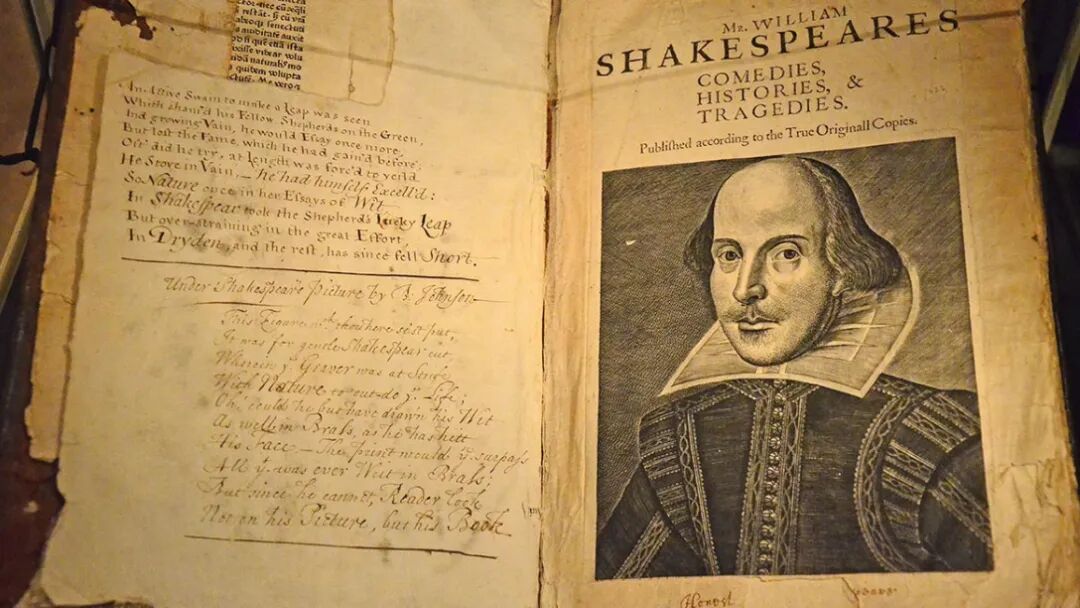 restat.
senectuti
auxit
ista
volu
volupta
An Active Swain to make a Leap was seen
Which sham'd his Fellow Shepherds on the Green,
And growing Vain, he would Essay once more,
But lost the Fame, which he had gain'd before;
Oft' did he try, at Length was forc'd to yeild
He Strove in Vain,— he had himself Excell'd:
So Nature once in her Essays of Wit
In Shakespear took the Shepherd's Lucky Leap
But over-straining in the great Effort
In Dryden, and the rest, has since fell Short.
Under Shakespears Picture by B. Johnson
This Figure yt. thou here se'st put,
It was for gentle Shakespear cut,
Wherein ye Graver was at Strife
With Nature to out-do ye Life;
Oh, could he but have drawn his Wit
As well in Brass, as he has hitt
His Face — The print would yn surpass
All yt was ever Writ in Brass:
But since he cannot, Reader look
Not on his Picture, but his Book
Mr. WILLIAM
SHAKESPEARES
COMEDIES,
HISTORIES, &
TRAGEDIES.
Published according to the True Originall Copies.